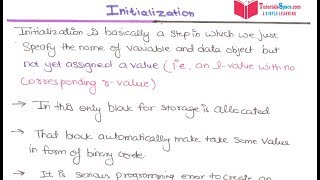 Initialization
TutorialsSpace.com
Initialization is basically a step in which we just
Specify the name of variable and data object but
not yet assigned a value (i.e, an l-value with no
corresponding r-value)
→ In this only block for storage is allocated
→ That block automatically make take some value
in form of binary code.
→ It is serious programming error to create an